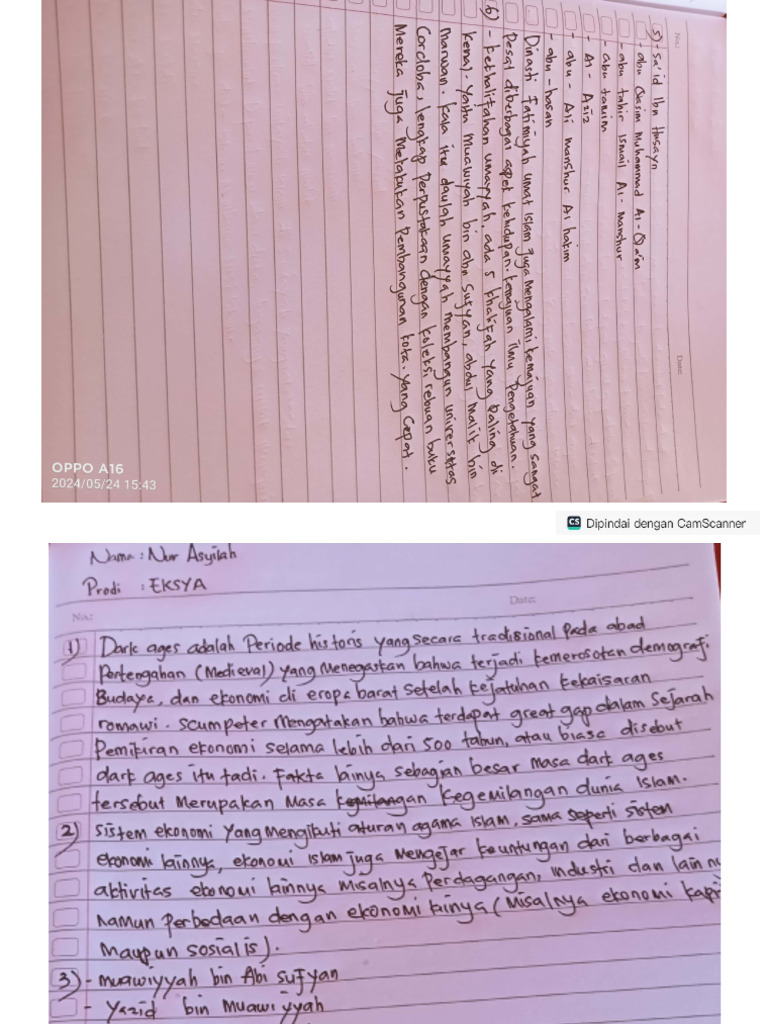 No.:
Date:
5) - Sa'id Ibn Husayn
- abu Qasim Muhammad Al-Qa'im
- abu tahir Ismail Al-Manshur
- abu tamim
- Al - Aziz
- abu - Ali manshur Al hakim
- abu - hasan
Dinasti Fatimiyah umat islam juga mengalami kemajuan yang sangat
Pesat diberbagai aspek kehidupan. kemajuan ilmu Pengetahuan.
6) - kekhalifahan umayyah, ada 5 khalifah yang Paling di
kenal. yaitu Muawiyah bin abu Sufyan, abdul malik bin
marwan. kala itu daulah umayyah membangun universitas
Cordoba, lengkap Perpustakaan dengan koleksi rebuan buku
Mereka juga Melakukan Pembangunan kota. yang cepat.
OPPO A16
2024/05/24 15:43
CS Dipindai dengan CamScanner
Nama : Nur Asyilah
Prodi : EKSYA
No.:
Date:
1) Dark ages adalah Periode historis yang secara tradisional Pada abad
Pertengahan (Medieval) yang menegaskan bahwa terjadi kemerosotan demografi.
Budaya, dan ekonomi di eropa barat setelah kejatuhan kekaisaran
romawi. scumpeter mengatakan bahwa terdapat great gap dalam sejarah
Pemikiran ekonomi selama lebih dari 500 tahun, atau biasa disebut
dark ages itu tadi. Fakta lainya sebagian besar masa dark ages
tersebut Merupakan Masa kegemilangan dunia Islam.
2) Sistem ekonomi yang mengikuti aturan agama Islam, sama seperti sistem
ekonomi lainnya, ekonomi islam juga mengejar keuntungan dari berbagai
aktivitas ekonomi lainnya misalnya Perdagangan, industri dan lain
Namun Perbedaan dengan ekonomi lainya (Misalnya ekonomi
maupun sosialis).
3) - muawiyyah bin Abi sufyan
- Yazid bin Muawiyyah